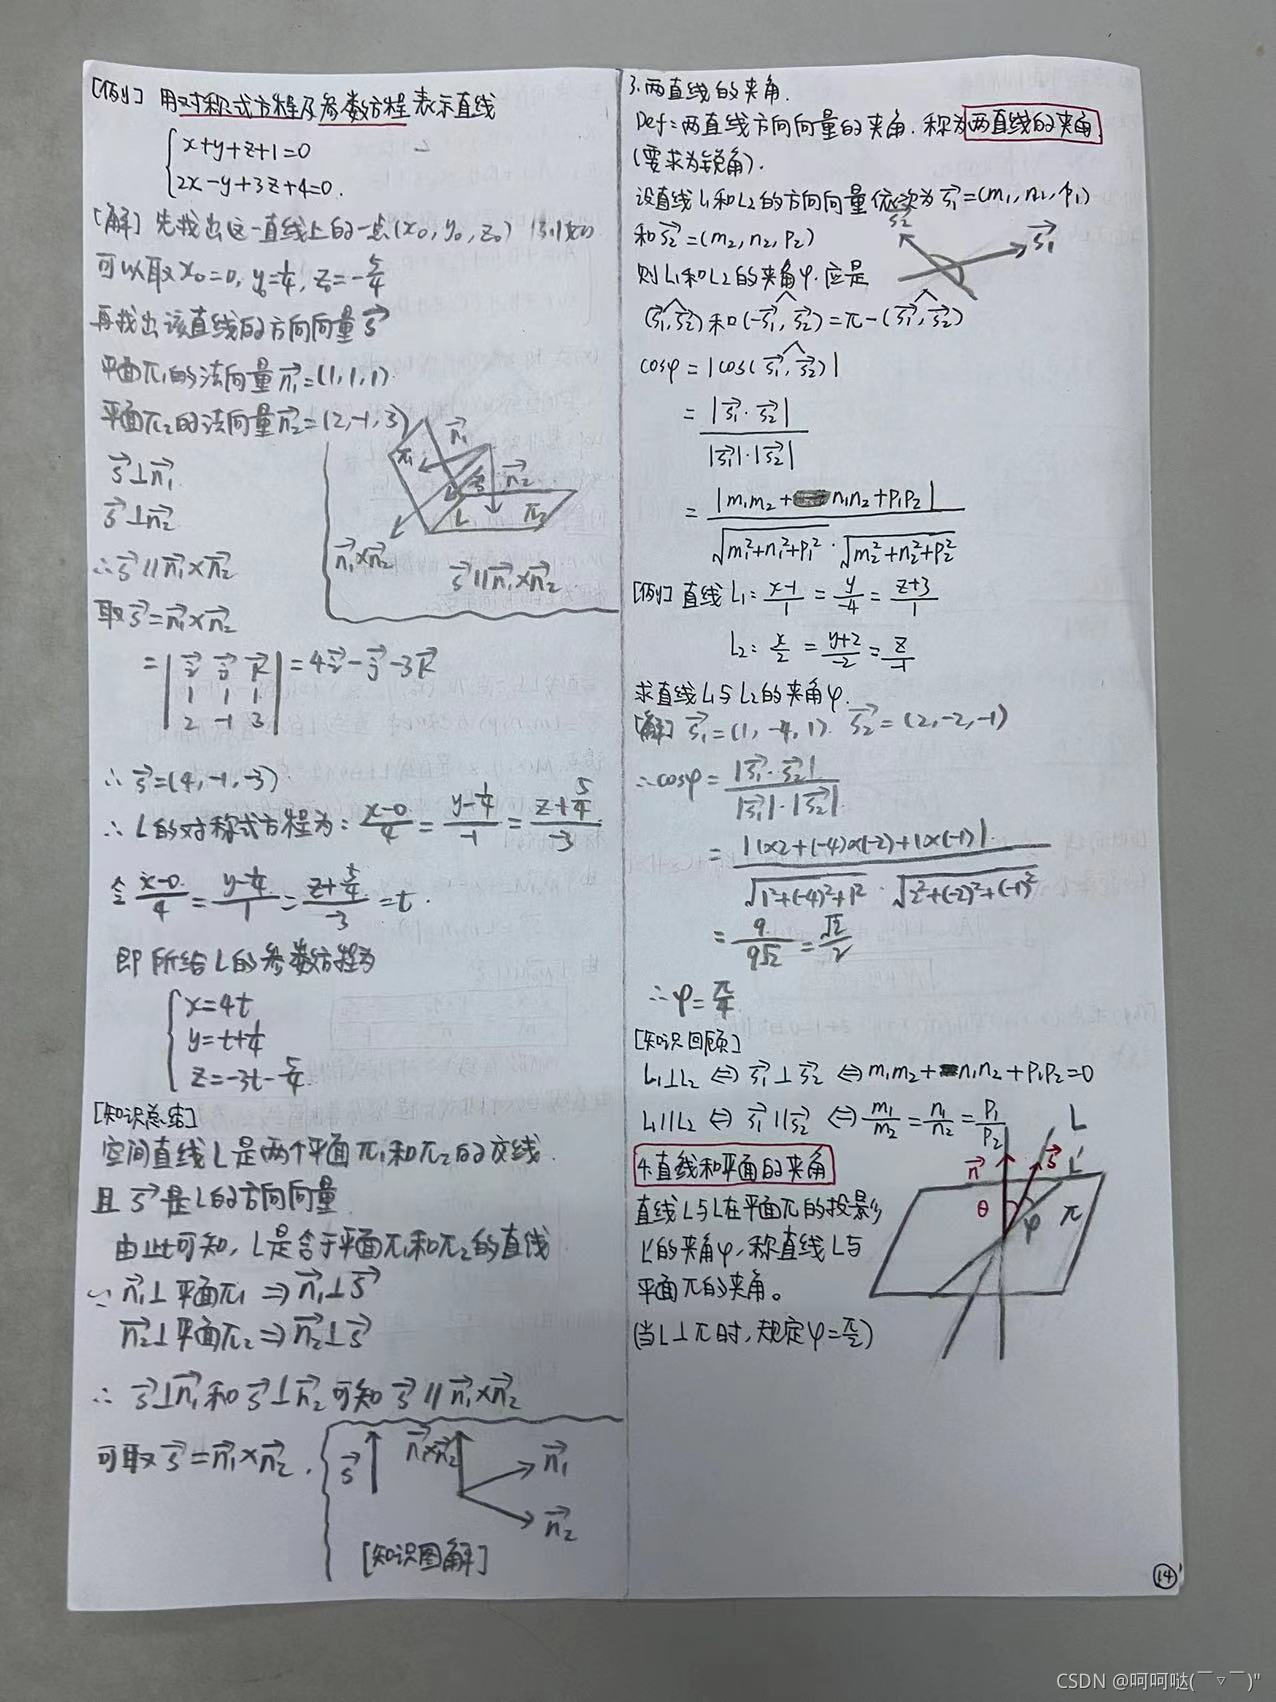 [例] 用对称式方程及参数方程表示直线
{ x+y+z+1=0
2x-y+3z+4=0.
[解] 先找出这一直线上的一点(x₀, y₀, z₀)
可以取x₀=0, y₀=1/4, z₀=-5/4
再找出该直线的方向向量s⃗
平面π₁的法向量n₁⃗=(1,1,1)
平面π₂的法向量n₂⃗=(2,-1,3)
s⃗⊥n₁⃗
s⃗⊥n₂⃗
∴s⃗∥n₁⃗×n₂⃗
取s⃗=n₁⃗×n₂⃗
π₁ n₁⃗ s⃗ n₂⃗ L π₂
n₁⃗×n₂⃗ s⃗∥n₁⃗×n₂⃗
=| i⃗ j⃗ k⃗ | = 4i⃗-j⃗-3k⃗
1 1 1
2 -1 3
∴ s⃗=(4,-1,-3)
∴ L的对称式方程为: (x-0)/4 = (y-1/4)/-1 = (z+5/4)/-3
令 (x-0)/4 = (y-1/4)/1 = (z+5/4)/-3 = t.
即所给L的参数方程为
{ x=4t
y=t+1/4
z=-3t-5/4
[知识总结]
空间直线L是两个平面π₁和π₂的交线.
且s⃗是L的方向向量
由此可知, L是含于平面π₁和π₂的直线
∵ n₁⃗⊥平面π₁ ⇒ n₁⃗⊥s⃗
n₂⃗⊥平面π₂ ⇒ n₂⃗⊥s⃗
∴ s⃗⊥n₁⃗和s⃗⊥n₂⃗可知 s⃗∥n₁⃗×n₂⃗
可取s⃗=n₁⃗×n₂⃗.
s⃗ n₁⃗×n₂⃗ n₁⃗
n₂⃗
[知识图解]
3.两直线的夹角.
Def:两直线方向向量的夹角.称为两直线的夹角
(要求为锐角).
设直线L₁和L₂的方向向量依次为s₁⃗=(m₁,n₁,p₁)
和s₂⃗=(m₂,n₂,p₂)
s₂⃗ s₁⃗
则L₁和L₂的夹角φ.应是
(s₁⃗,s₂⃗)和(-s₁⃗,s₂⃗)=π-(s₁⃗,s₂⃗)
cosφ=|cos(s₁⃗,s₂⃗)|
= |s₁⃗·s₂⃗| / |s₁⃗|·|s₂⃗|
= |m₁m₂+n₁n₂+p₁p₂| / √(m₁²+n₁²+p₁²)·√(m₂²+n₂²+p₂²)
[例] 直线L₁: (x-1)/1 = y/-4 = (z+3)/1
L₂: x/2 = (y+2)/-2 = z/-1
求直线L₁与L₂的夹角φ.
[解] s₁⃗=(1,-4,1). s₂⃗=(2,-2,-1)
∴cosφ = |s₁⃗·s₂⃗| / |s₁⃗|·|s₂⃗|
= |1×2+(-4)×(-2)+1×(-1)| / √(1²+(-4)²+1²)·√(2²+(-2)²+(-1)²)
= 9/9√2 = √2/2
∴φ=π/4
[知识回顾]
L₁⊥L₂ ⇔ s₁⃗⊥s₂⃗ ⇔ m₁m₂+n₁n₂+p₁p₂=0
L₁∥L₂ ⇔ s₁⃗∥s₂⃗ ⇔ m₁/m₂ = n₁/n₂ = p₁/p₂
4.直线和平面的夹角
直线L与L在平面π的投影
L'的夹角φ,称直线L与
平面π的夹角。
(当L⊥π时,规定φ=π/2)
n⃗ s⃗ L
L'
θ φ π
14
CSDN @呵呵哒(￣▽￣)"